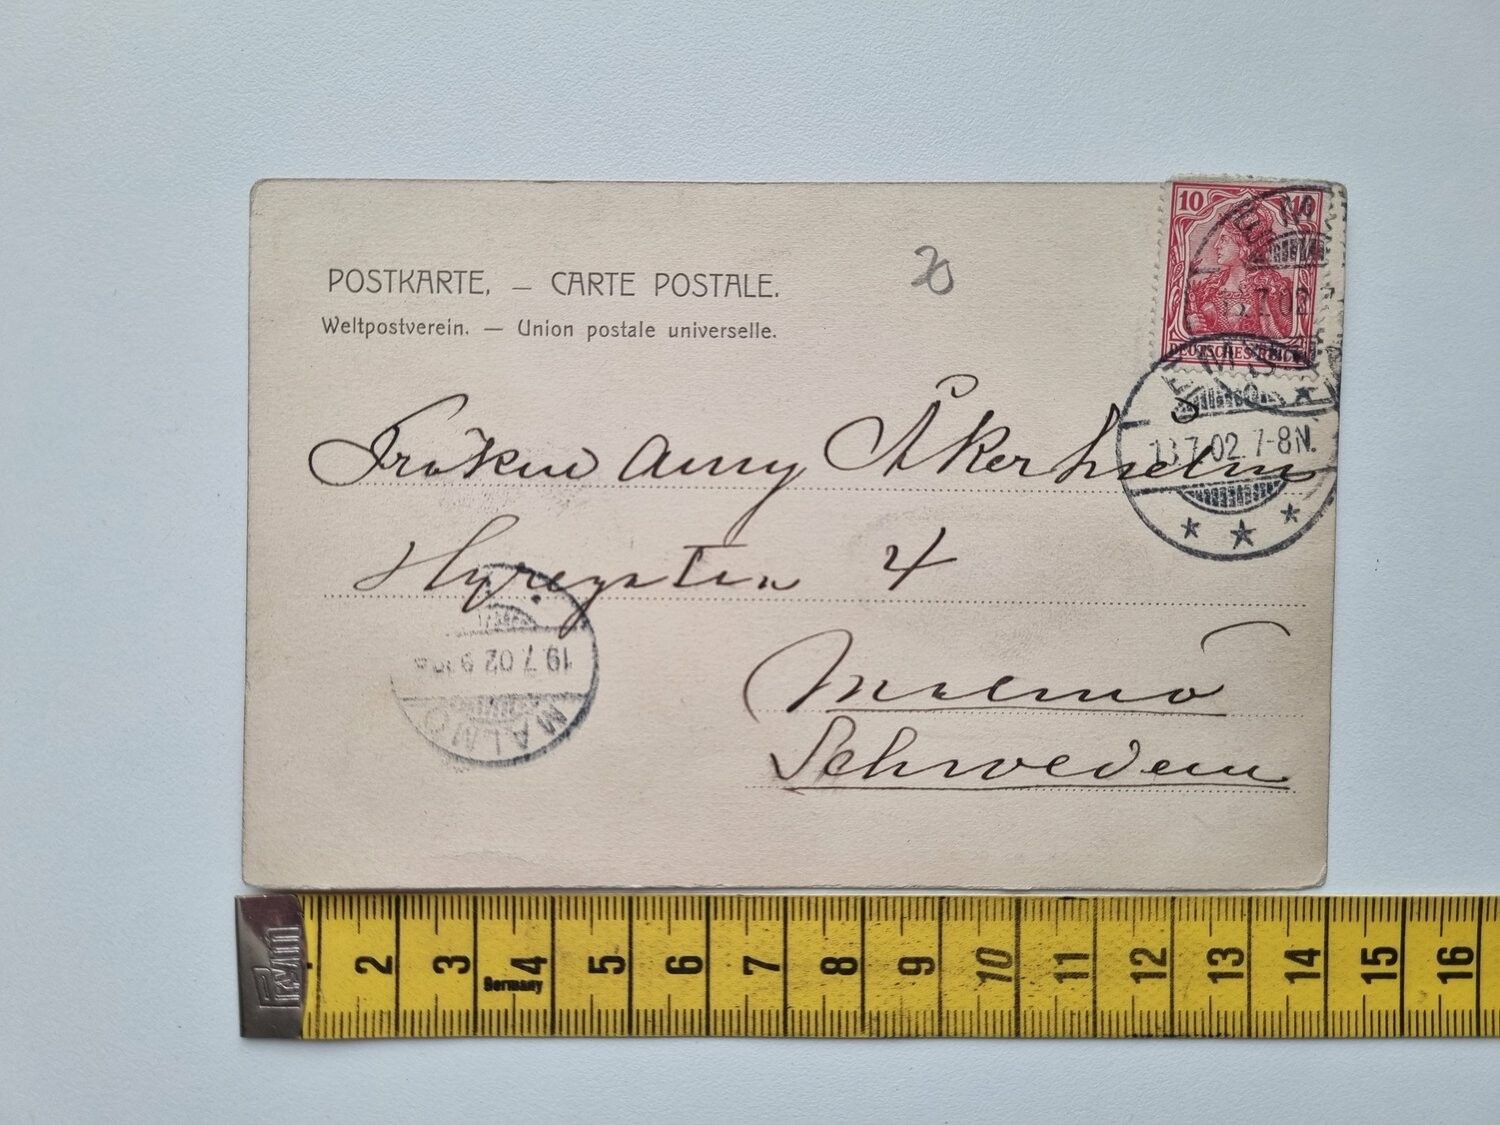 POSTKARTE. — CARTE POSTALE.
Weltpostverein. — Union postale universelle.
20
10 10
DEUTSCHES REICH
7.02
13.7.02. 7-8N.
Fröken Anny Åkerhielm
4
Malmö
Schweden
19.7.02
MALMÖ
PRYM
2 3 4 5 6 7 8 9 10 11 12 13 14 15 16
Germany